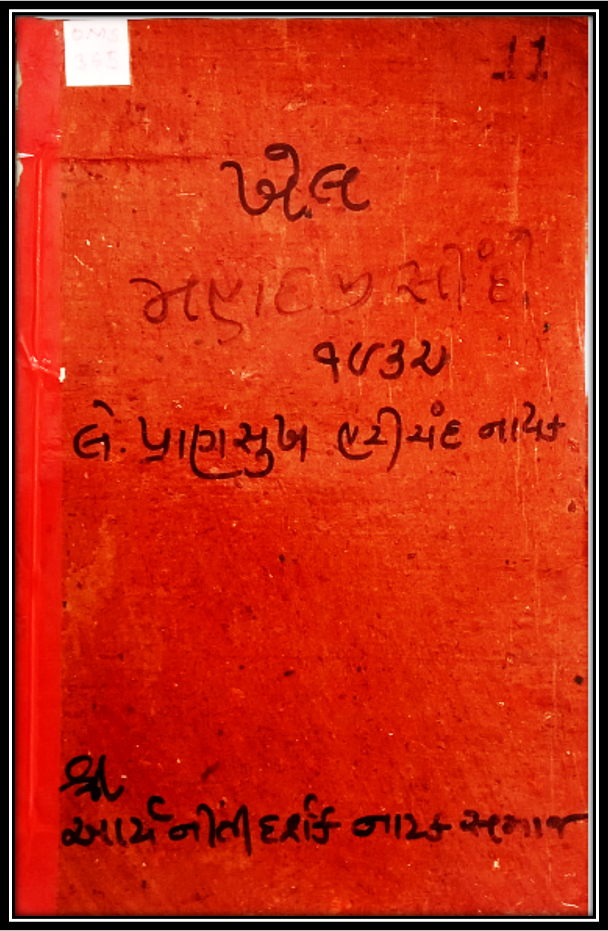 11
ખેલ
મહાદજી સીંદી
૧૯૩૨
લે. પ્રાણસુખ હરીચંદ નાયક
શ્રી
આર્ય નીતી દર્શક નાટક સમાજ